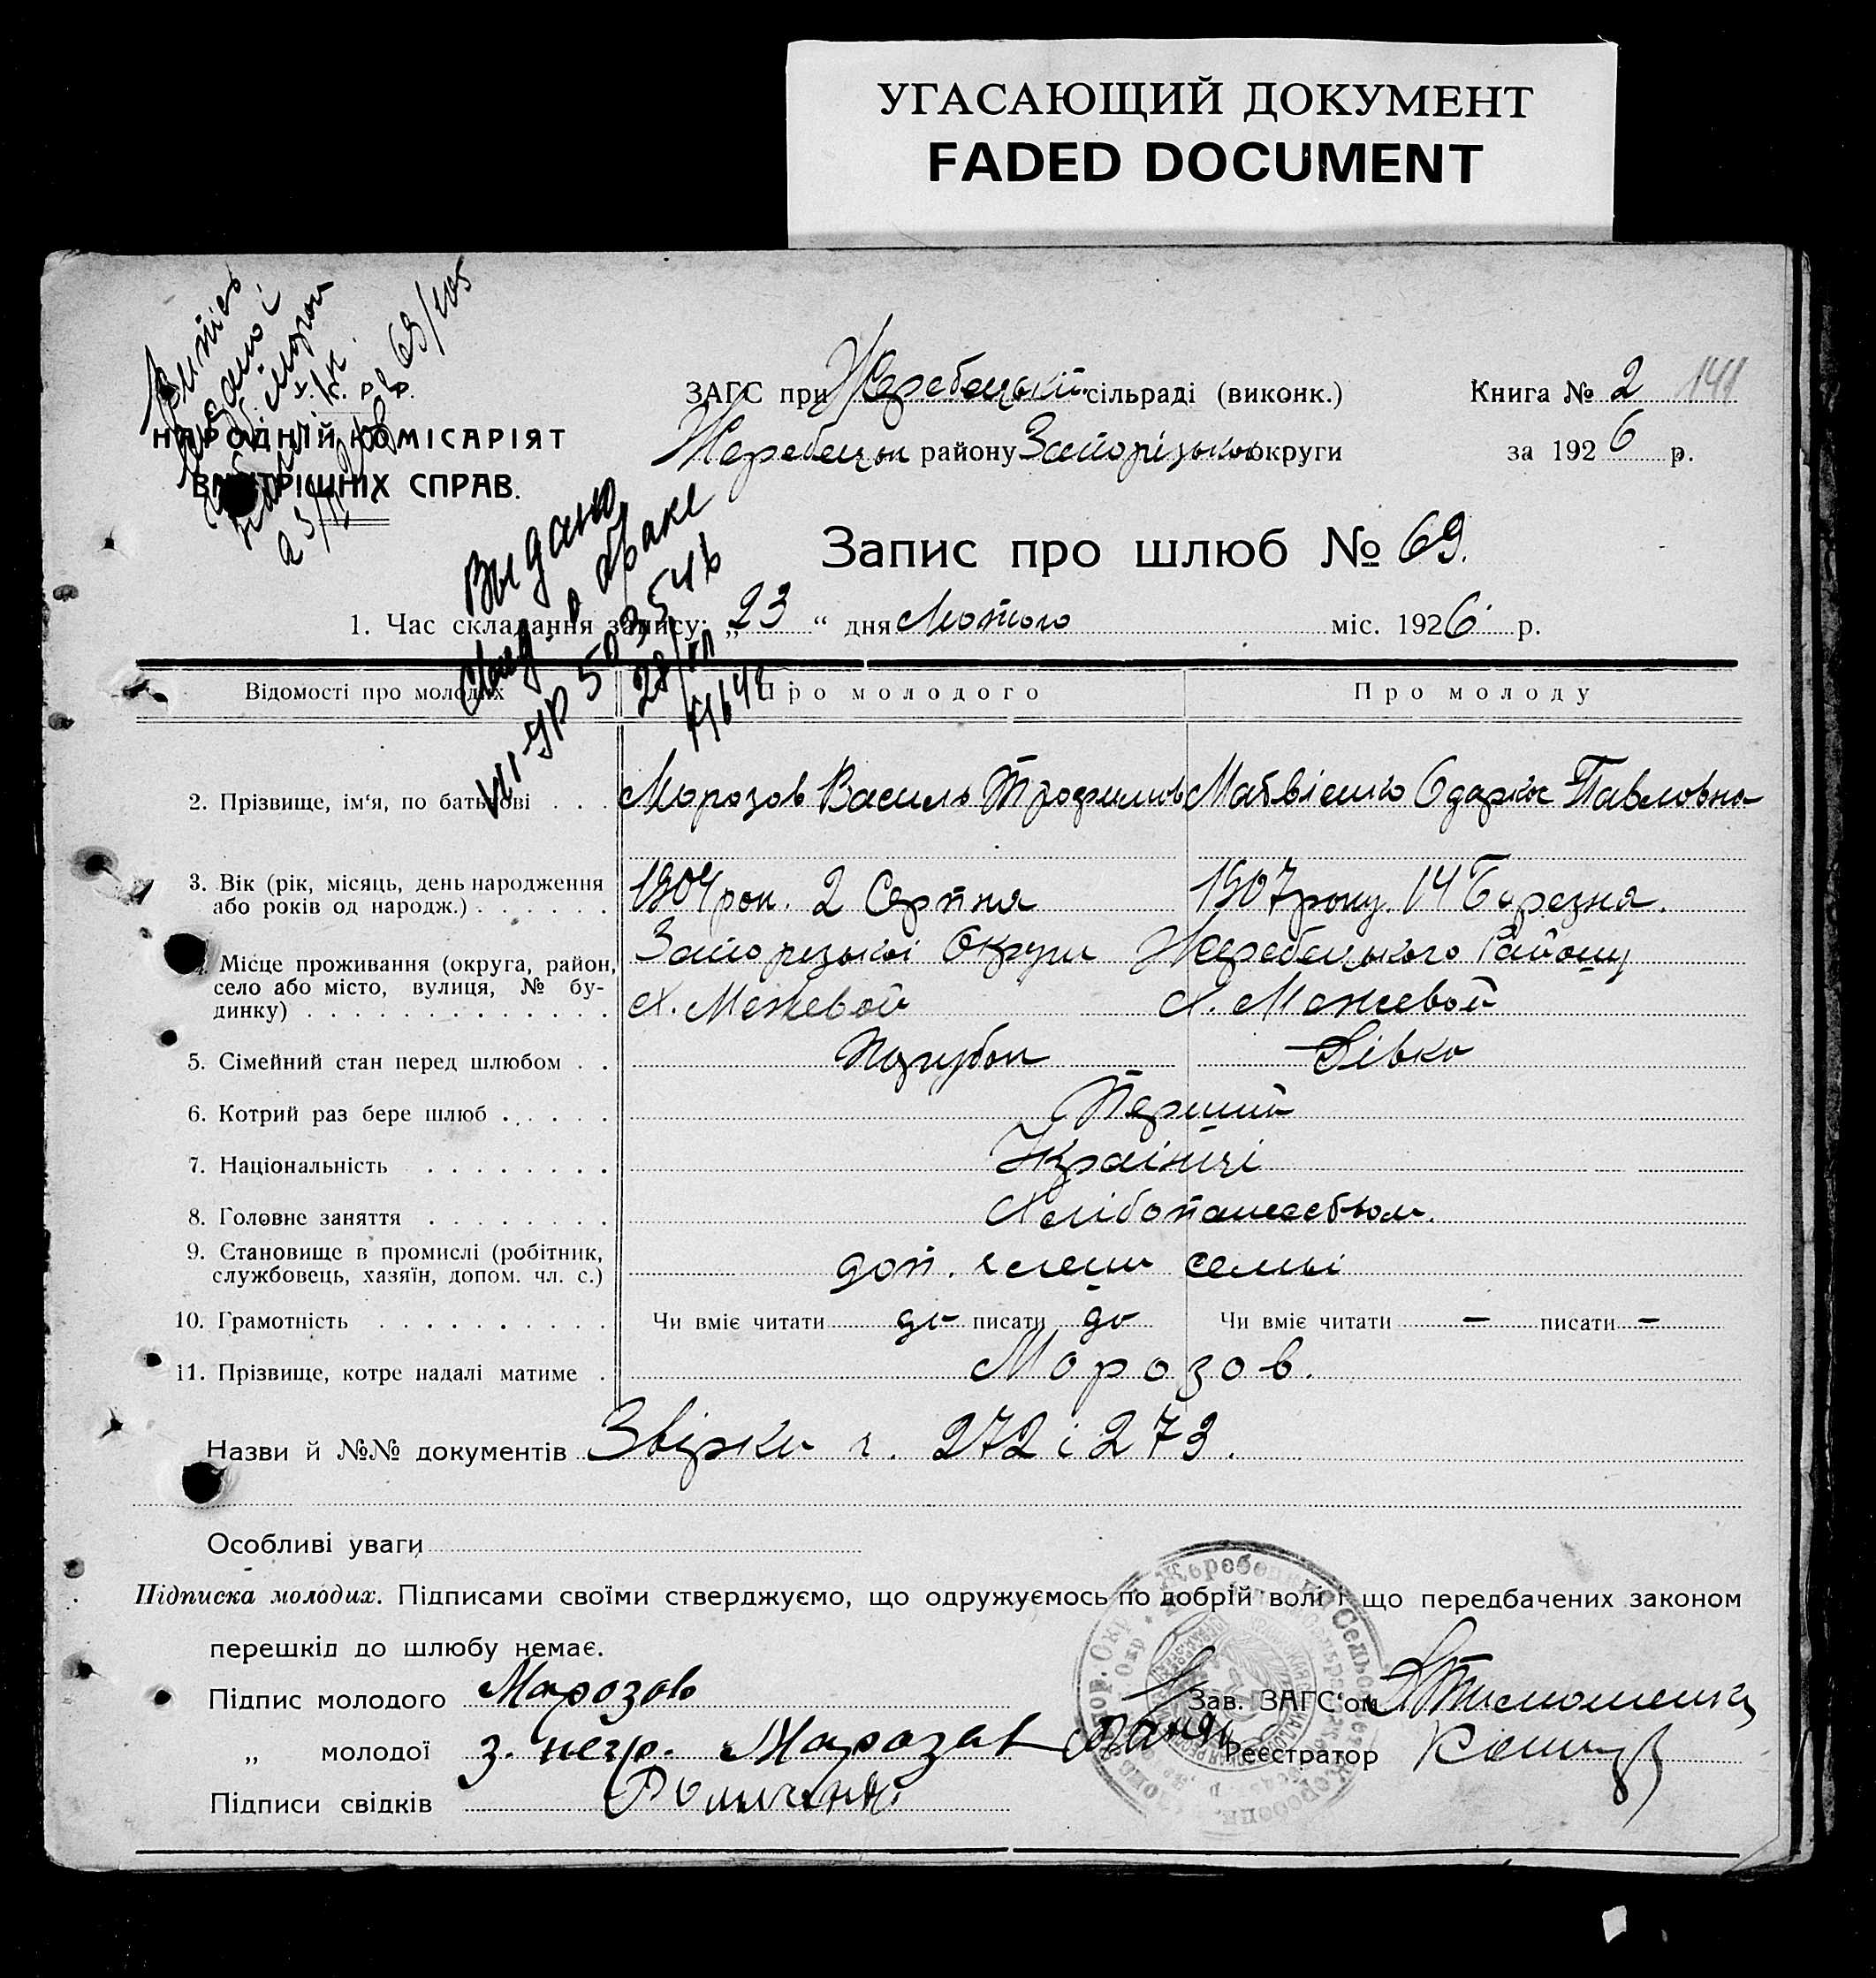 УГАСАЮЩИЙ ДОКУМЕНТ
FADED DOCUMENT
Випись
69/205
НАРОДНІЙ КОМІСАРІЯТ
ВНУТРІШНІХ СПРАВ.
ЗАГС при Жеребецькій сільраді (виконк.)
Книга № 2 141
Жеребецьк району Запорізької округи
за 1926 р.
Выдано
о браке
Запис про шлюб № 69.
1. Час складання запису: „23“ дня Лютого міс. 1926 р.
Відомості про молодих
Про молодого
Про молоду
2. Прізвище, ім‘я, по батькові . . .
Морозов Василь Трофимов
Матвієнко Одарка Павловна
3. Вік (рік, місяць, день народження
або років од народж.) . . . . . .
1904 рок. 2 Серпня
1907 року. 14 Березня.
4. Місце проживання (округа, район,
село або місто, вулиця, № бу-
динку) . . . . . . . . . . . . .
Запорізької Округи Жеребецького Району
х. Межевой
х. Межевой
5. Сімейний стан перед шлюбом . .
Парубок
Дівка
6. Котрий раз бере шлюб . . . . .
Перший
7. Національність . . . . . . . .
Українці
8. Головне заняття . . . . . . . .
Хлібопашеством.
9. Становище в промислі (робітник,
службовець, хазяїн, допом. чл. с.)
доп. члени семьі
10. Грамотність . . . . . . . . . .
Чи вміє читати да писати да
Чи вміє читати — писати —
11. Прізвище, котре надалі матиме .
Морозов.
Назви й №№ документів Звірки ч. 272 і 273.
Особливі уваги
Підписка молодих. Підписами своїми стверджуємо, що одружуємось по добрій волі і що передбачених законом
перешкід до шлюбу немає.
Підпис молодого Марозов
Зав. ЗАГС‘ом Тимошенко
„ молодої з. негр. Марозов
Реєстратор
Підписи свідків